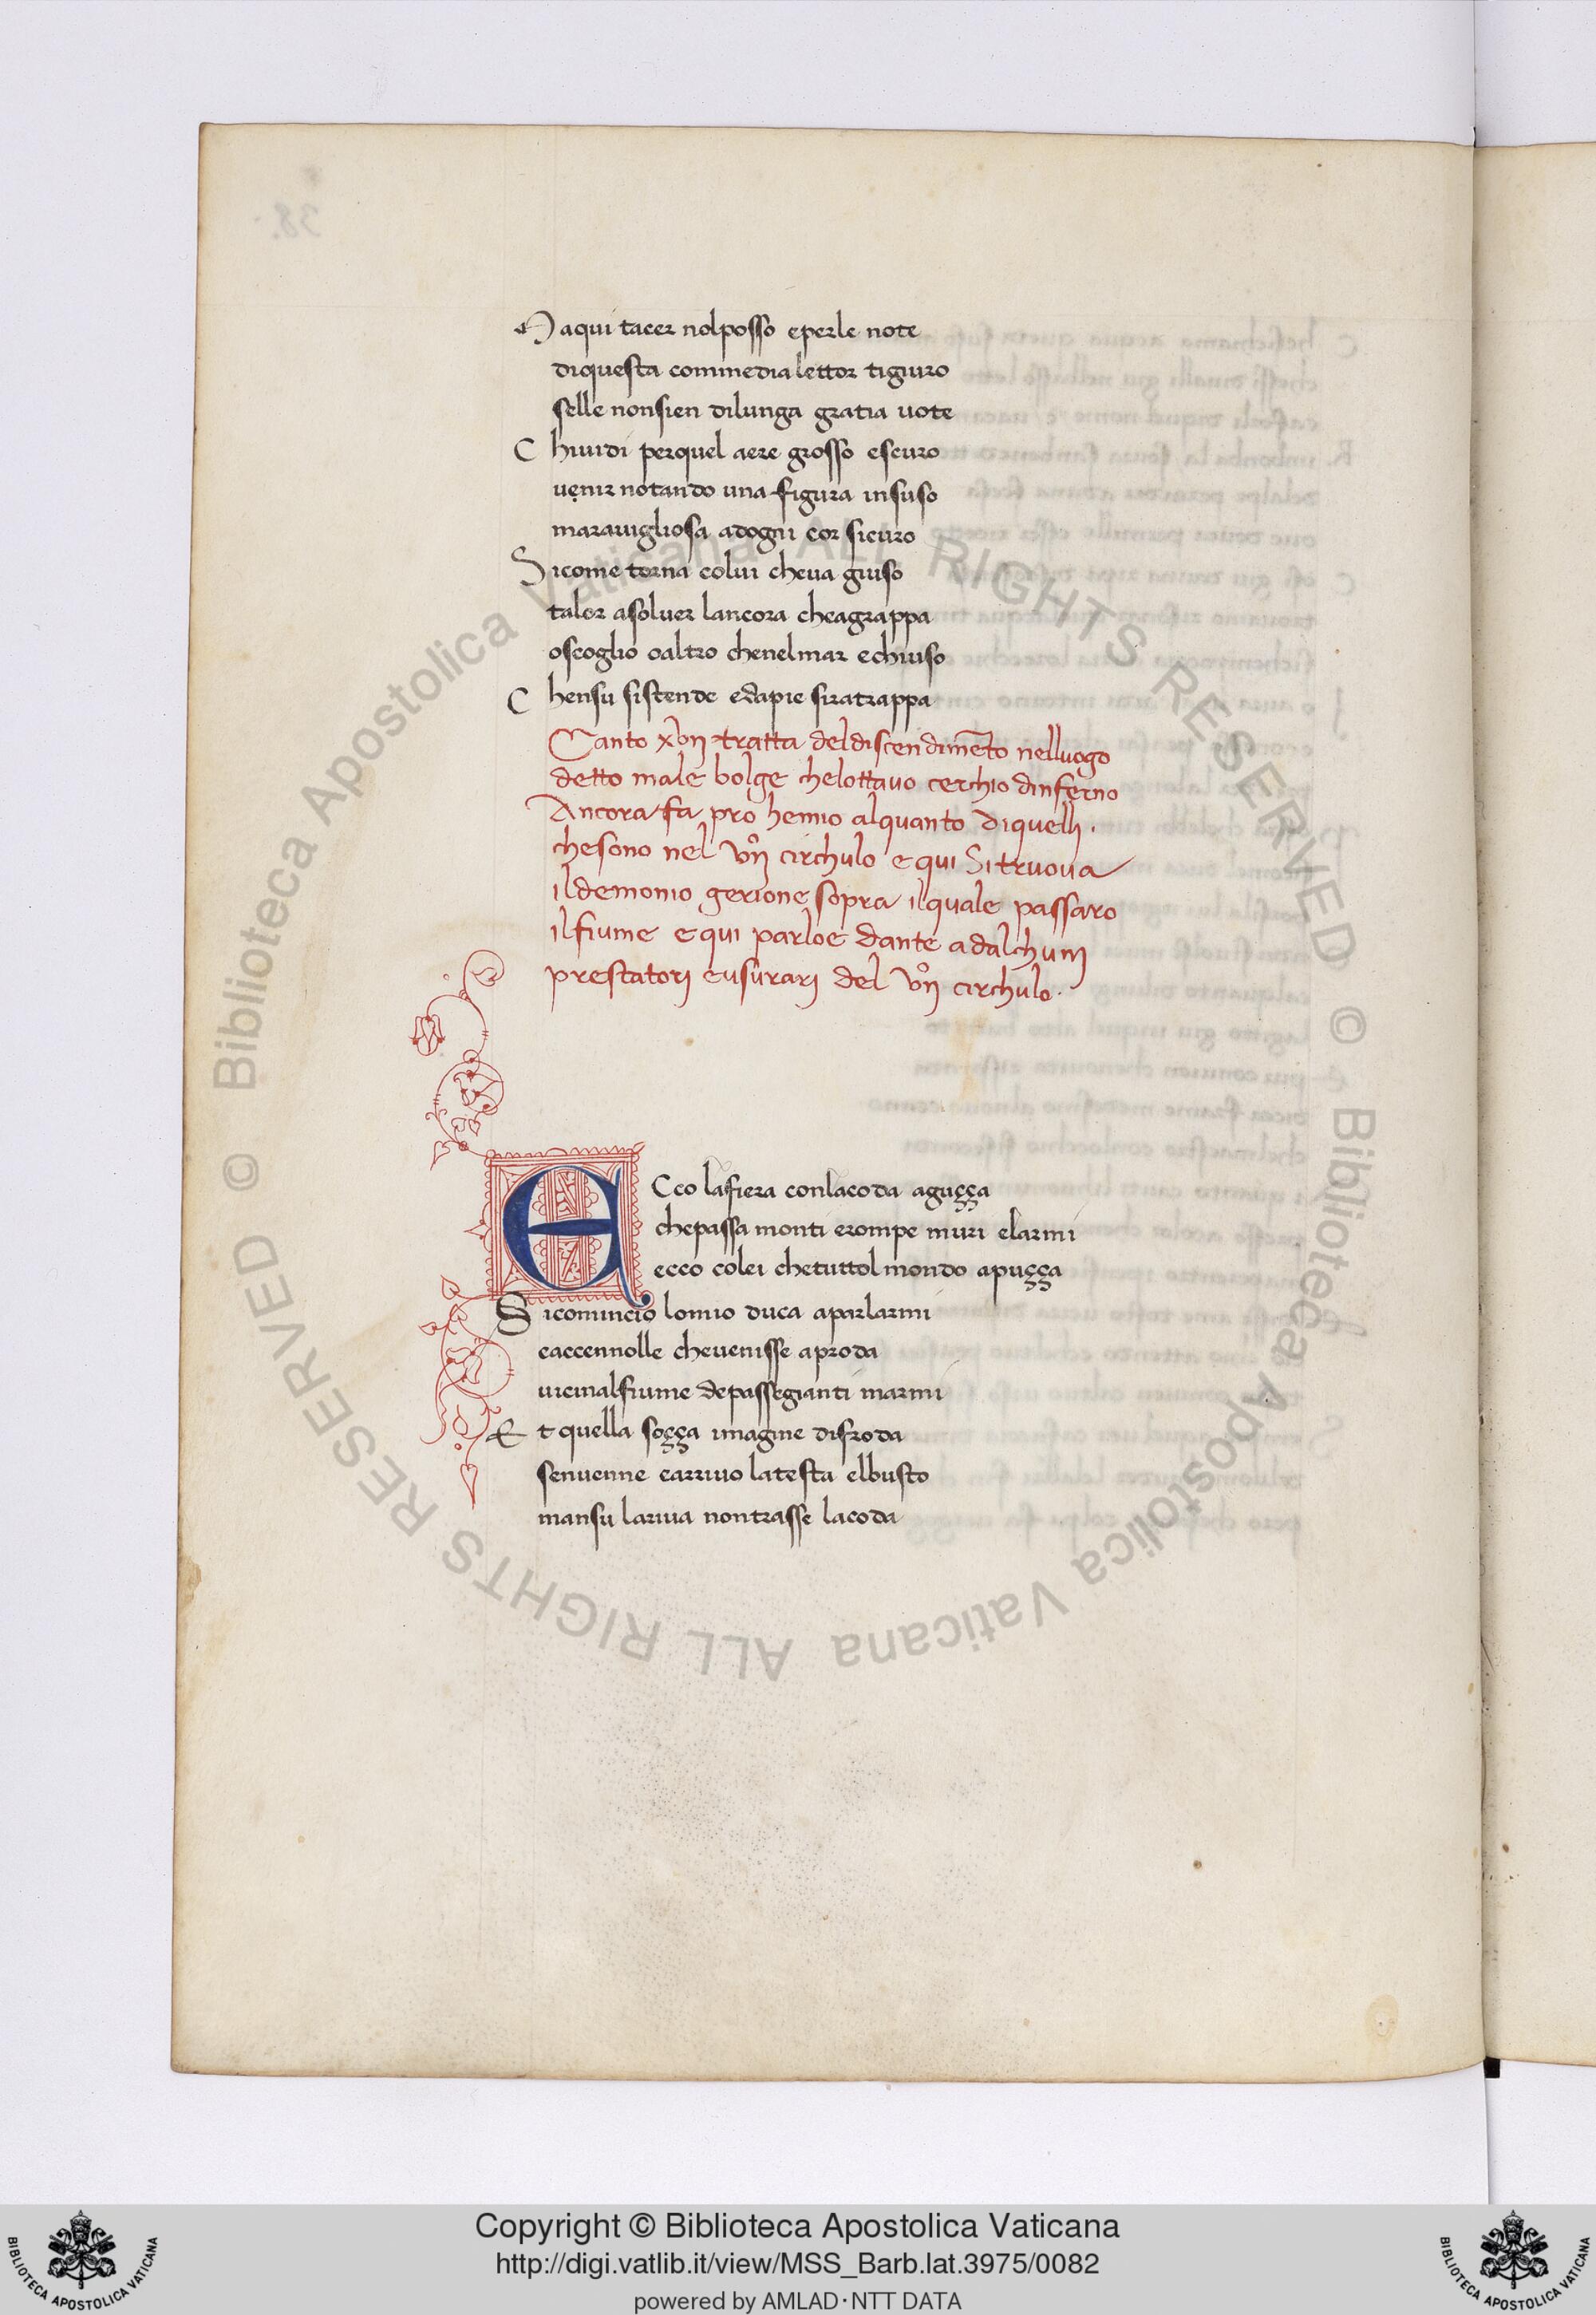 Maqui tacer nolposso eperle note
diquesta commedia lettor tiguro
selle nonsien dilunga gratia uote
Chiuidi perquel aere grosso escuro
uenir notando una figura insuso
marauigliosa adogni cor sicuro
Sicome torna colui cheua giuso
talor asoluer lancora cheagrappa
oscoglio oaltro chenelmar echiuso
Chensu sistende edapie siratrappa
Canto xvij tratta deldiscendimēto nelluogo
detto male bolge chelottauo cerchio dinferno
Ancora fa pro hemio alquanto diquelli.
chesono nel vijº circhulo e qui Si truova
ildemonio gerione sopra ilquale passaro
ilfiume e qui parloe dante adalchuni
prestatorj eusurarj del vijº circhulo.
ECco lafiera conlacoda aguçça
chepassa monti erompe muri elarmi
ecco colei chetuttol mondo apuçça
Sicomincio lomio duca aparlarmi
eaccennolle cheuenisse aproda
uicinalfiume depassegianti marmi
Et quella soçça imagine difroda
senuenne earriuo latesta elbusto
mansu lariua nontrasse lacoda
© Biblioteca Apostolica Vaticana ALL RIGHTS RESERVED
© Biblioteca Apostolica Vaticana ALL RIGHTS RESERVED
Copyright © Biblioteca Apostolica Vaticana
http://digi.vatlib.it/view/MSS_Barb.lat.3975/0082
powered by AMLAD·NTT DATA
BIBLIOTECA APOSTOLICA VATICANA
BIBLIOTECA APOSTOLICA VATICANA